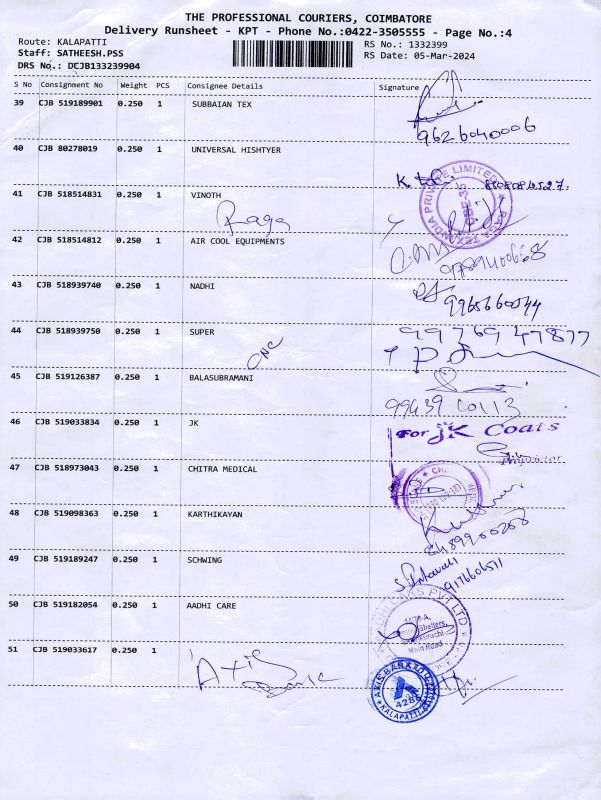 THE PROFESSIONAL COURIERS, COIMBATORE
Delivery Runsheet - KPT - Phone No.:0422-3505555 - Page No.:4
Route: KALAPATTI
Staff: SATHEESH.PSS
DRS No.: DCJB133239904
RS No.: 1332399
RS Date: 05-Mar-2024
S No Consignment No Weight PCS Consignee Details Signature
39 CJB 519189901 0.250 1 SUBBAIAN TEX
9626040006
40 CJB 80278019 0.250 1 UNIVERSAL HISHTYER
41 CJB 518514831 0.250 1 VINOTH
Raga
RAGA TEX INDIA PRIVATE LIMITED
42 CJB 518514812 0.250 1 AIR COOL EQUIPMENTS
43 CJB 518939740 0.250 1 NADHI
9965660044
44 CJB 518939750 0.250 1 SUPER
CNC
9976947877
45 CJB 519126387 0.250 1 BALASUBRAMANI
99439 60113
46 CJB 519033834 0.250 1 JK
For JK Coats
47 CJB 518973043 0.250 1 CHITRA MEDICAL
48 CJB 519098363 0.250 1 KARTHIKAYAN
49 CJB 519189247 0.250 1 SCHWING
50 CJB 519182054 0.250 1 AADHI CARE
PVT LTD
Main Road
51 CJB 519033617 0.250 1
Axis Bank
AXIS BANK LTD
4286
KALAPATTI